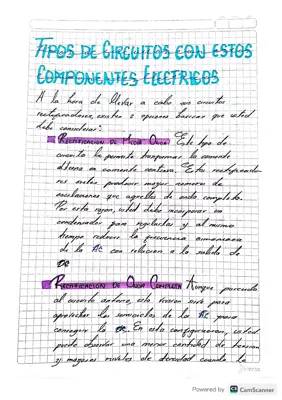 TIPOS DE CIRCUITOS CON ESTOS
COMPONENTES ELECTRICOS
A la hora de llevar a cabo un circuito
rectificadores, existen 2 opciones basicas que usted
debe considerar:
RECTIFICACION DE MEDIA ONDA: Este tipo de
circuito le permite trasformar la corriente
alterna en corriente continua. Estos rectificado-
res suelen producir mayor numero de
oscilaciones que aquellos de onda completa.
Por esta razon, usted debe incorporar un
condensador para regularlos y al mismo
tiempo reducir la frecuencia armonica
de la AC con relacion a la salida de
DC
RECTIFICACION DE ONDA COMPLETA Aunque parecido
al circuito anterior, esta version sirve para
aprovechar los semiciclos de la AC para
conseguir la DC. En esta configuracion, usted
puede abordar una menor cantidad de tension
y mayores niveles de densidad cuando la
Powered by CS CamScanner